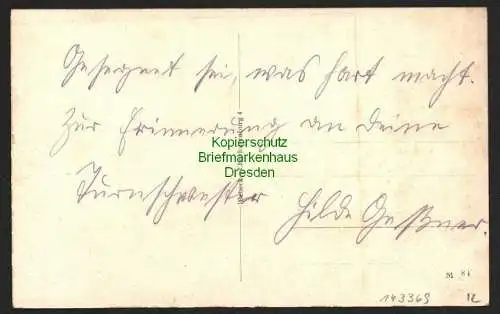 Gesegnet sei, was hart macht.
Zur Erinnerung an Deine
Kopierschutz
Briefmarkenhaus
Dresden
Turnschwester Hilde Geßner.
M 84
143369 12